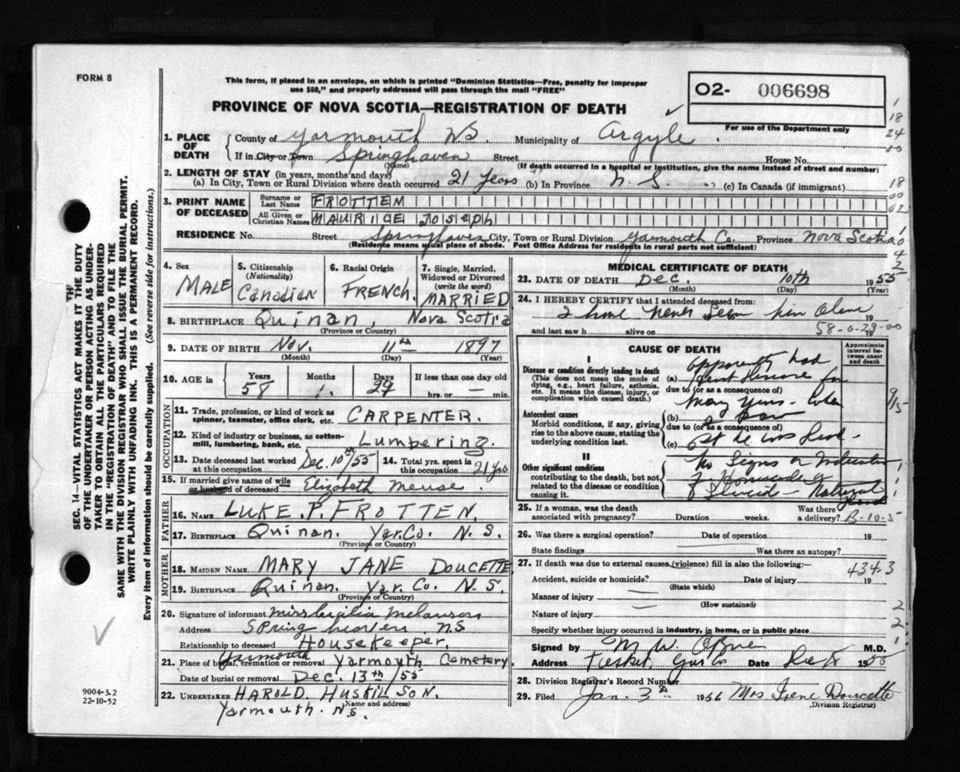 FORM 8
This form, if placed in an envelope, on which is printed "Dominion Statistics—Free, penalty for improper
use $50," and properly addressed will pass through the mail "FREE"
PROVINCE OF NOVA SCOTIA—REGISTRATION OF DEATH
O2- 006698
For use of the Department only
18
24
00
18
00
02
1. PLACE OF DEATH
County of Yarmouth NS. Municipality of Argyle.
If in City or Town Springhaven Street House No.
(Name) (If death occurred in a hospital or institution, give the name instead of street and number)
2. LENGTH OF STAY (in years, months and days)
(a) In City, Town or Rural Division where death occurred 21 Years (b) In Province N. S. (c) In Canada (if immigrant)
3. PRINT NAME OF DECEASED
Surname or Last Name FROTTEN
All Given or Christian Names MAURICE JOSEPH
RESIDENCE No. Street Springhaven City, Town or Rural Division Yarmouth Co. Province Nova Scotia
(Residence means usual place of abode. Post Office Address for residents in rural parts not sufficient)
4. Sex MALE
5. Citizenship (Nationality) Canadian
6. Racial Origin FRENCH.
7. Single, Married, Widowed or Divorced (write the word) MARRIED
8. BIRTHPLACE Quinan, Nova Scotia
(Province or Country)
9. DATE OF BIRTH Nov. 11th 1897
(Month) (Day) (Year)
10. AGE in Years 58 Months 1. Days 29 If less than one day old hrs. or min.
OCCUPATION
11. Trade, profession, or kind of work as spinner, teamster, office clerk, etc. CARPENTER.
12. Kind of industry or business, as cotton-mill, lumbering, bank, etc. Lumbering.
13. Date deceased last worked at this occupation Dec. 10th/55
14. Total yrs. spent in this occupation 21 yrs
15. If married give name of wife or husband of deceased Elizabeth Meuse
FATHER
16. NAME LUKE. P. FROTTEN
17. BIRTHPLACE Quinan. Yar. Co. N. S.
(Province or Country)
MOTHER
18. MAIDEN NAME. MARY JANE DOUCETTE
19. BIRTHPLACE Quinan. Yar. Co. N. S.
(Province or Country)
20. Signature of informant Miss Melanson
Address Spring haven NS
Relationship to deceased Housekeeper.
21. Place of burial, cremation or removal Yarmouth Cemetery.
Date of burial or removal Dec. 13th/55
22. UNDERTAKER HAROLD. HUSKILSON.
(Name and address)
Yarmouth. N.S.
MEDICAL CERTIFICATE OF DEATH
23. DATE OF DEATH Dec. 10th 1955
(Month) (Day) (Year)
24. I HEREBY CERTIFY that I attended deceased from:
I have never seen him alive
and last saw h alive on
58-0-29-00
CAUSE OF DEATH
Approximate interval between onset and death
I
Disease or condition directly leading to death
(This does not mean the mode of dying, e.g., heart failure, asthenia, etc. It means the disease, injury, or complication which caused death.)
(a) Apparently had
due to (or as a consequence of)
many years.
Antecedent causes
Morbid conditions, if any, giving rise to the above cause, stating the underlying condition last.
(b)
due to (or as a consequence of)
(c) he was dead-
II
Other significant conditions contributing to the death, but not related to the disease or condition causing it.
No Signs or Indication
of
Natural
25. If a woman, was the death associated with pregnancy? Duration weeks. Was there a delivery? B-10-5
26. Was there a surgical operation? Date of operation 19
State findings Was there an autopsy?
27. If death was due to external causes (violence) fill in also the following: 434.3
Accident, suicide or homicide? Date of injury 19
(State which)
Manner of injury
(How sustained)
Nature of injury
Specify whether injury occurred in industry, in home, or in public place
Signed by M W O'Brien M.D.
Address Date 1955
28. Division Registrar's Record Number
29. Filed Jan. 3rd 1956 Mrs Irene Doucette
(Division Registrar)
SEC. 14—VITAL STATISTICS ACT MAKES IT THE DUTY
OF THE UNDERTAKER OR PERSON ACTING AS UNDERTAKER TO OBTAIN ALL THE PARTICULARS REQUIRED
IN THE "REGISTRATION OF DEATH" AND TO FILE THE
SAME WITH THE DIVISION REGISTRAR WHO SHALL ISSUE THE BURIAL PERMIT.
WRITE PLAINLY WITH UNFADING INK. THIS IS A PERMANENT RECORD.
Every item of information should be carefully supplied. (See reverse side for instructions.)
9004-3.2
22-10-52